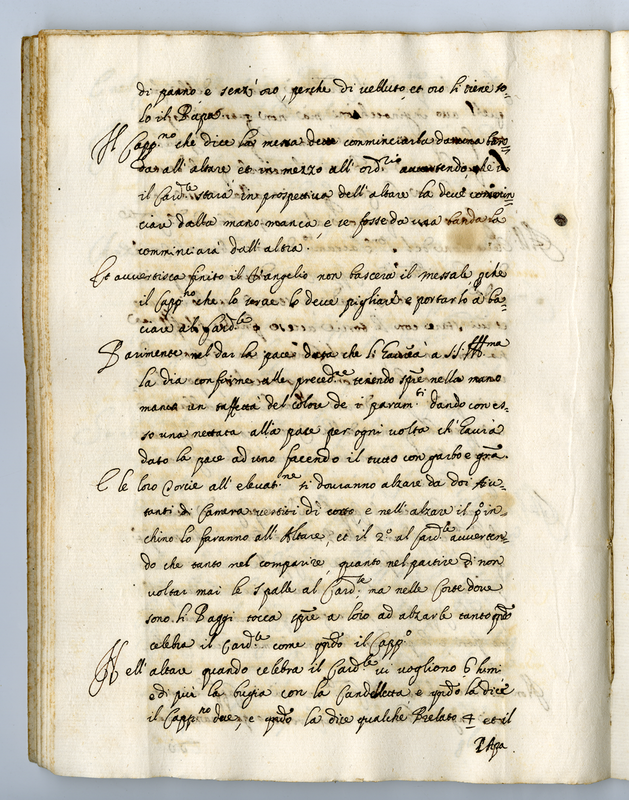 di panno, e senz' oro, perche di velluto, et oro li tiene so=
lo il Papa
Il Capp.no che dice la messa deve comminciarla da una ban=
da all' altare et in mezzo all' ord.rio avvertendo, che
il Card.le starà in prospettiva dell' altare la deve commin=
ciare dalla mano manca, e se fosse da una banda la
comminciarà dall' altra.
Et avvertisca finito il Vangelio non bascerà il messale, p̱che
il Capp.no che lo serve lo deve pigliare e portarlo à ba=
ciare al Card.le
Parimente nel dar la pace data che li l'haverà a S.S. Ill.ma
la dia conforme alle preced.ze tenendo sp̄re nella mano
manca un taffettà del colore de i param.ti dando con es=
so una nettata alla pace per ogni volta ch' l'havrà
dato la pace ad uno facendo il tutto con garbo e gr̄a.
E le loro Torcie all' elevat.ne si dovranno alzare da doi Aiu=
tanti di Camera vestiti di corto e nell' alzare il p.o in=
chino lo faranno all' Altare, et il 2.o al Card.le avverten=
do che tanto nel comparire, quanto nel partire di non
voltar mai le spalle al Card.le, ma nelle Corte dove
sono li Paggi tocca sp̄re a loro ad alzarle tanto qn̄do
celebra il Card.le come qn̄do il Capp.o
Nell' altare quando celebra il Card.le vi vogliono 6 lumi
e di più la bugia con la Candelletta e qn̄do la dice
il Capp.no due, e qn̄do la dice qualche Prelato 4 et il
Papa